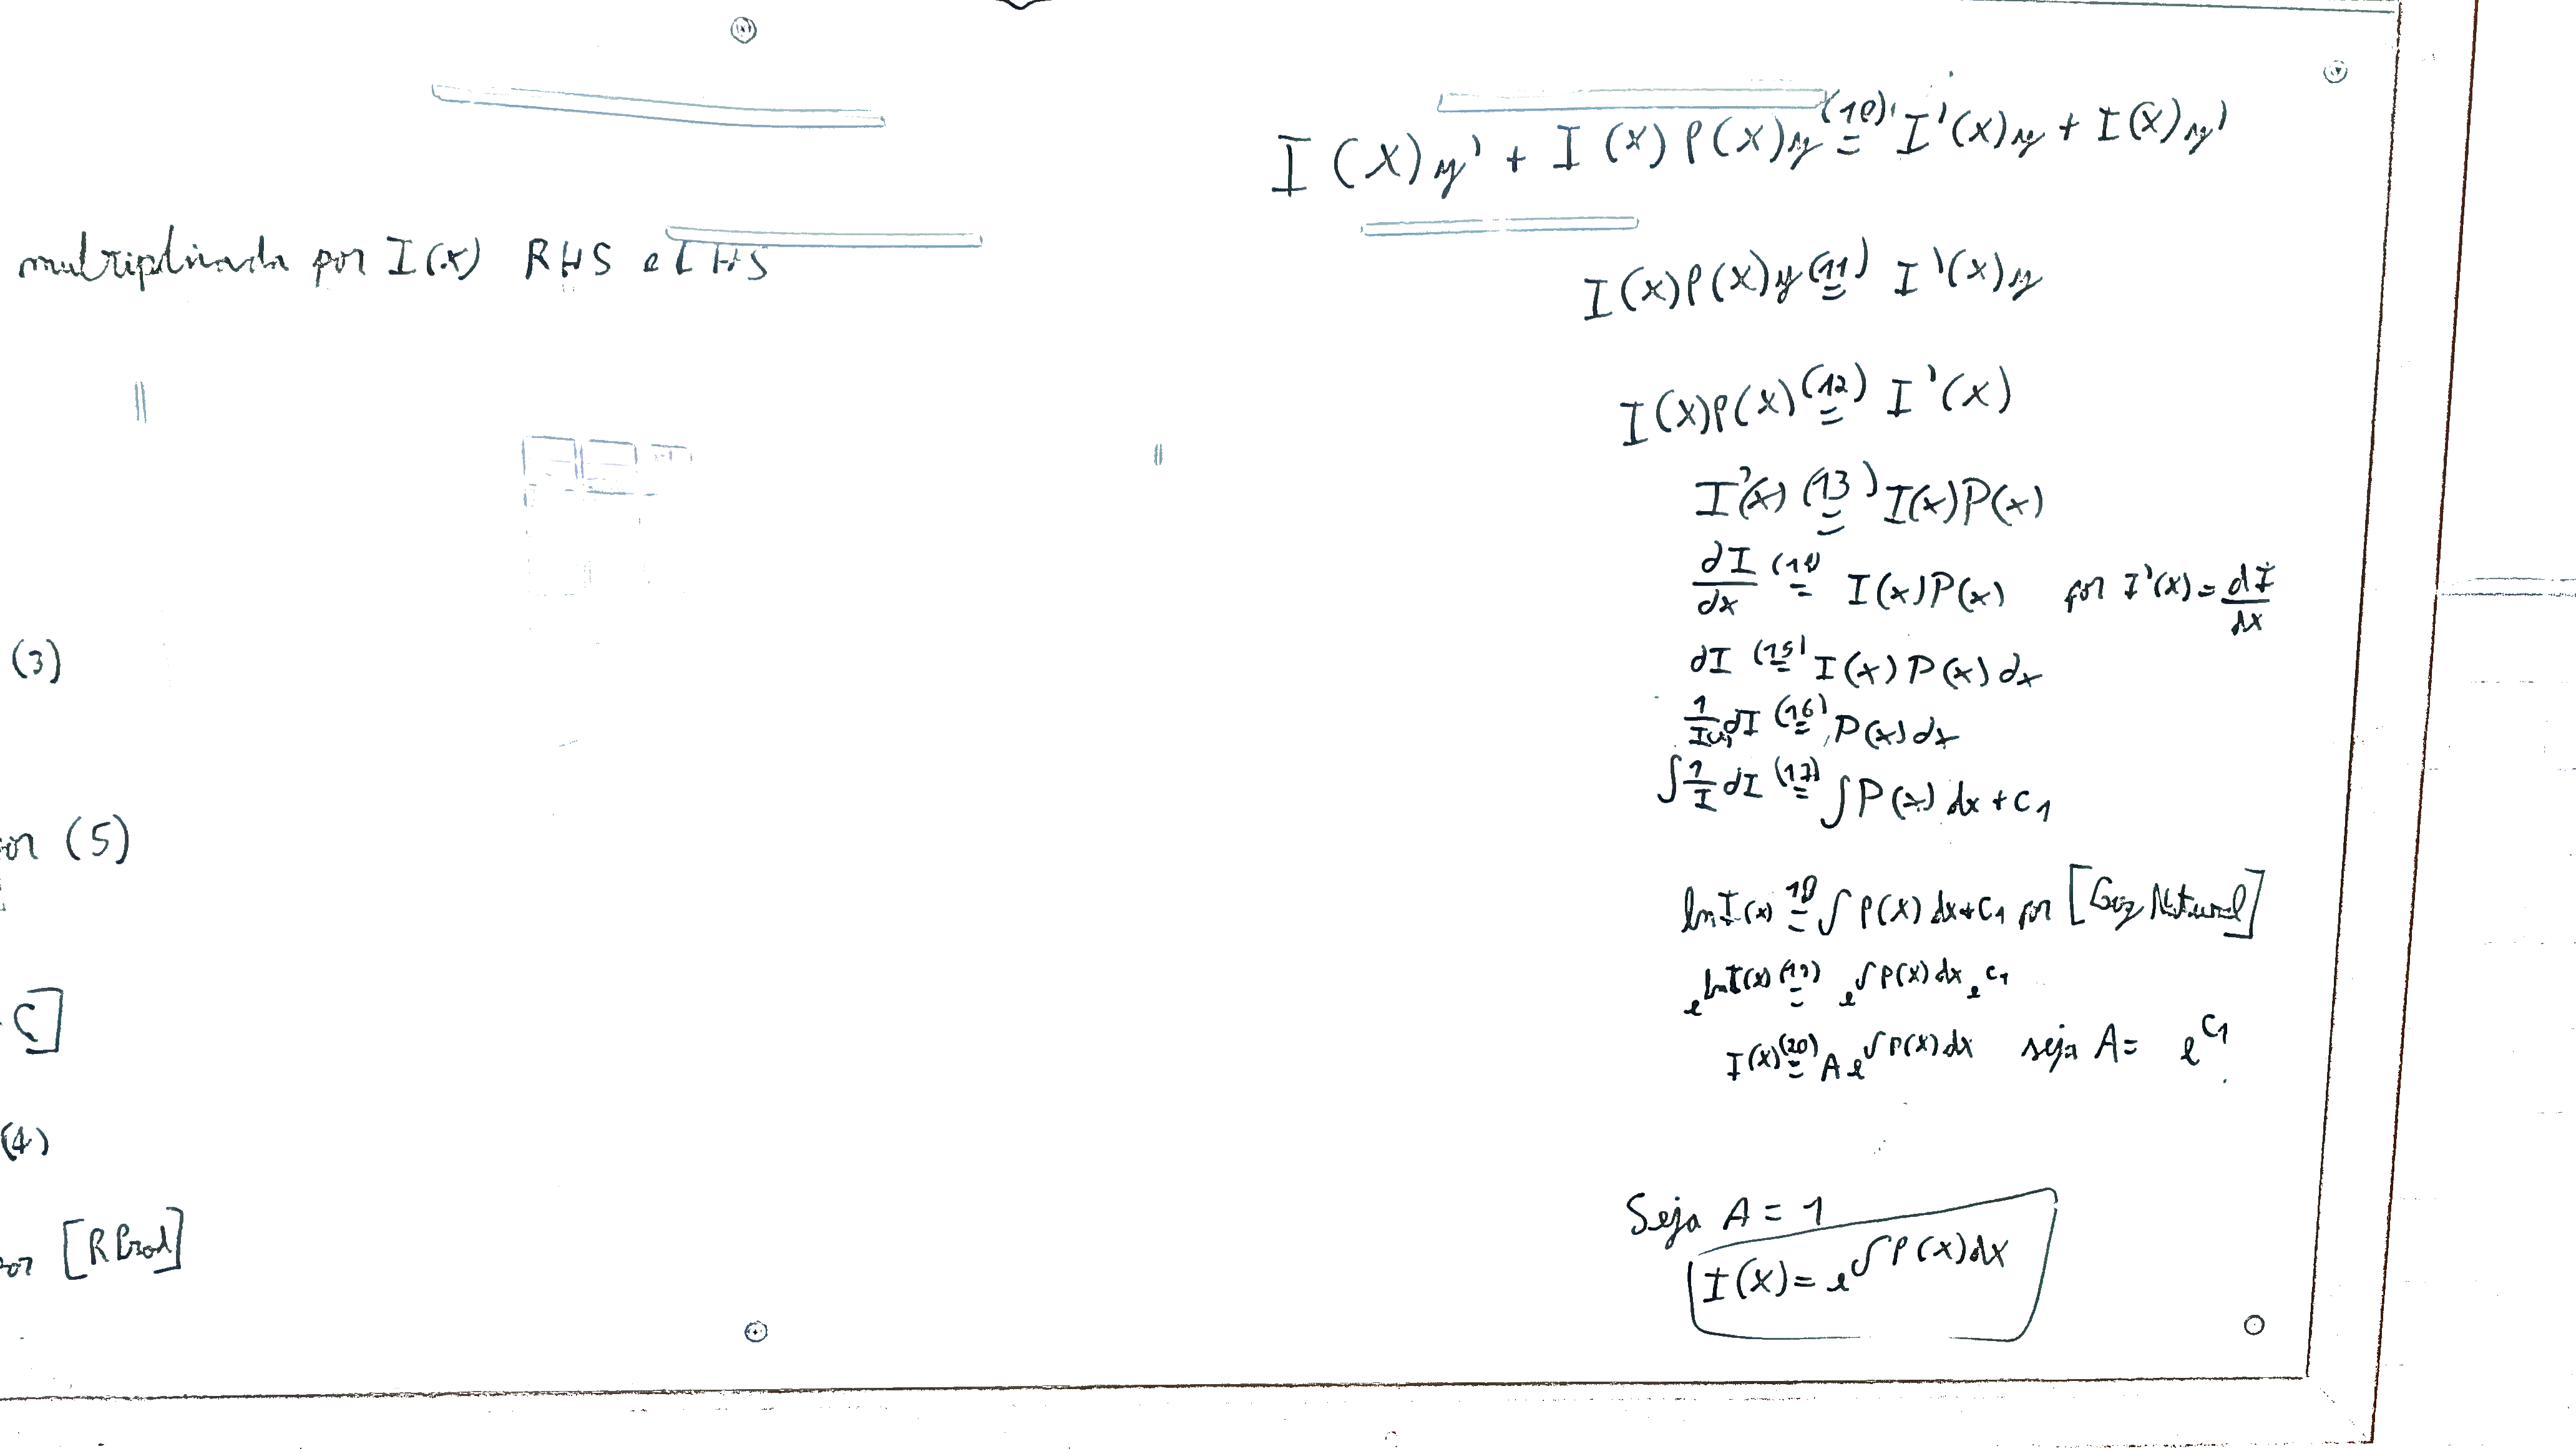 multiplicada por I(x) RHS e LHS
(3)
por (5)
C]
(4)
por [RProd]
I(x)y' + I(x)P(x)y (10)= I'(x)y + I(x)y'
I(x)P(x)y (11)= I'(x)y
I(x)P(x) (12)= I'(x)
I'(x) (13)= I(x)P(x)
dI/dx (14)= I(x)P(x) por I'(x) = dI/dx
dI (15)= I(x)P(x)dx
1/I(x) dI (16)= P(x)dx
∫1/I dI (17)= ∫P(x)dx + C₁
ln I(x) 18= ∫P(x)dx + C₁ por [Log Natural]
e^(ln I(x)) (19)= e^(∫P(x)dx) e^(C₁)
I(x) (20)= A e^(∫P(x)dx) seja A = e^(C₁)
Seja A = 1
I(x) = e^(∫P(x)dx)